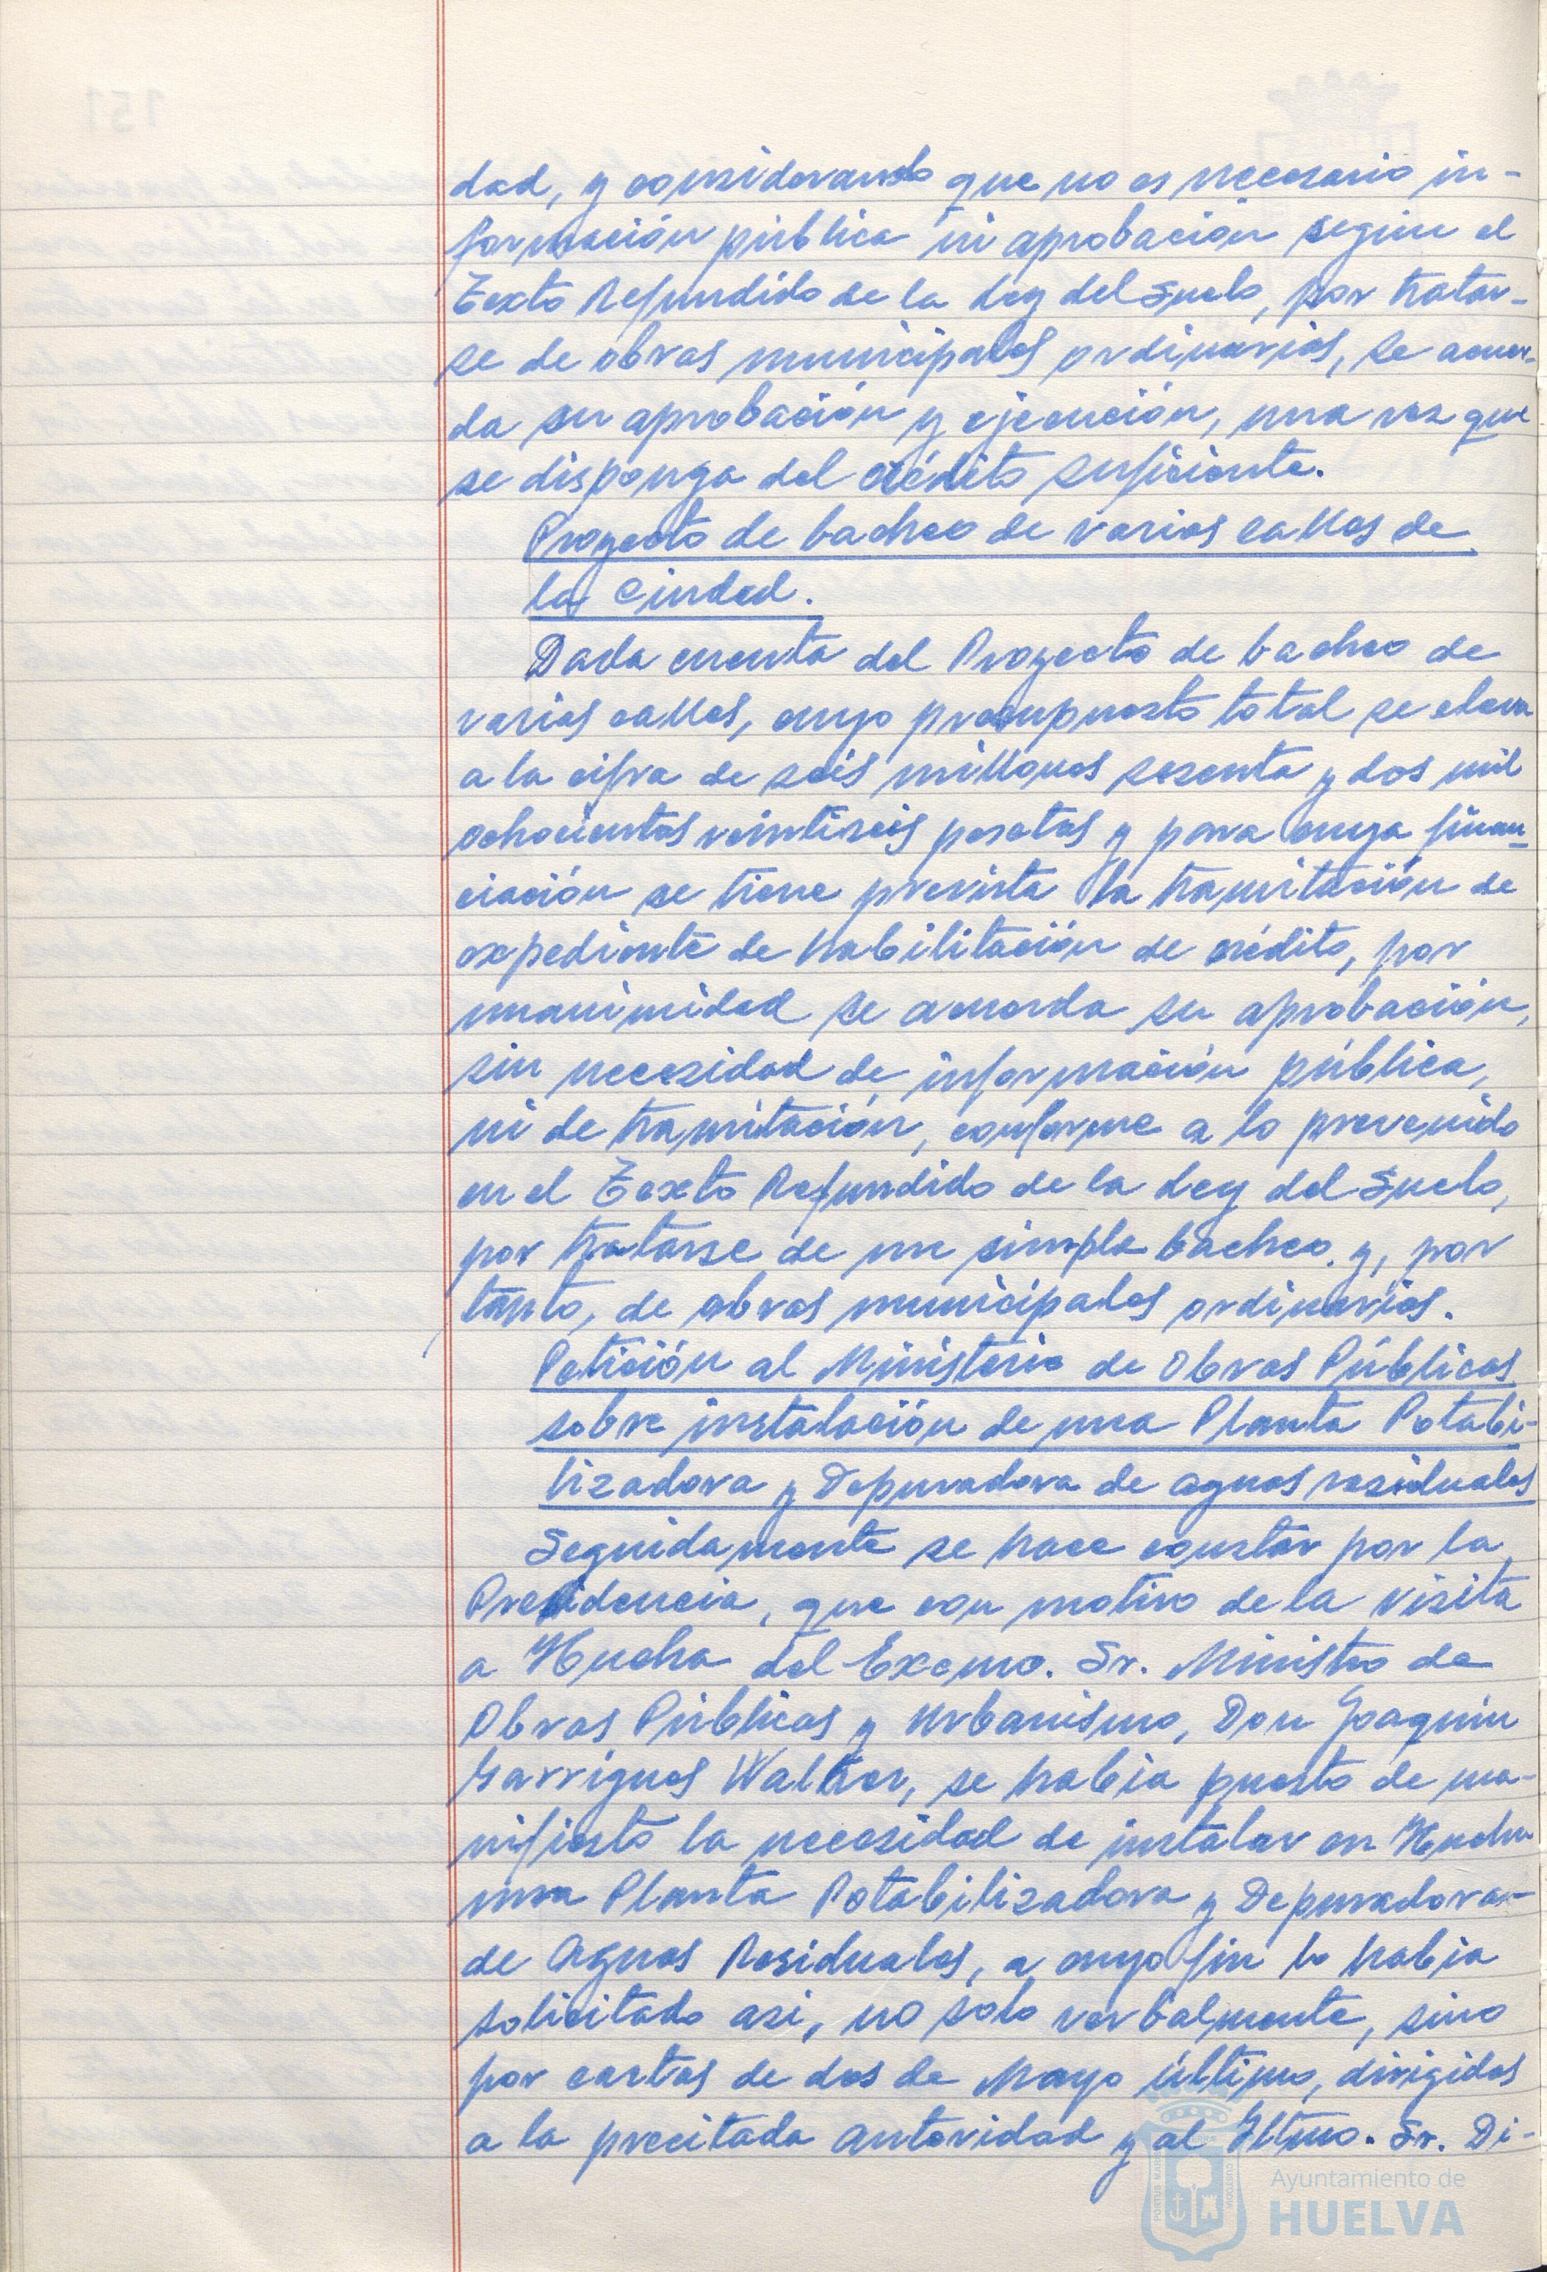 dad, y considerando que no es necesario in-
formación pública ni aprobación según el
Texto Refundido de la Ley del Suelo, por tratar-
se de obras municipales ordinarias, se acuer-
da su aprobación y ejecución, una vez que
se disponga del crédito suficiente.
Proyecto de bacheo de varias calles de
la Ciudad.
Dada cuenta del Proyecto de bacheo de
varias calles, cuyo presupuesto total se eleva
a la cifra de seis millones sesenta y dos mil
ochocientas veintiseis pesetas y para cuya finan-
ciación se tiene prevista la tramitación de
expediente de habilitación de crédito, por
unanimidad se acuerda su aprobación,
sin necesidad de información pública,
ni de tramitación, conforme a lo prevenido
en el Texto Refundido de la Ley del Suelo,
por tratarse de un simple bacheo y, por
tanto, de obras municipales ordinarias.
Petición al Ministerio de Obras Públicas
sobre instalación de una Planta Potabi-
lizadora y Depuradora de aguas residuales
Seguidamente se hace constar por la
Presidencia, que con motivo de la visita
a Huelva del Excmo. Sr. Ministro de
Obras Públicas y Urbanismo, Don Joaquín
Garrigues Walker, se había puesto de ma-
nifiesto la necesidad de instalar en Huelva
una Planta Potabilizadora y Depuradora-
de Aguas Residuales, a cuyo fin lo había
solicitado asi, no solo verbalmente, sino
por cartas de dos de Mayo último, dirigidas
a la precitada autoridad y al Iltmo. Sr. Di-
Ayuntamiento de
HUELVA
151